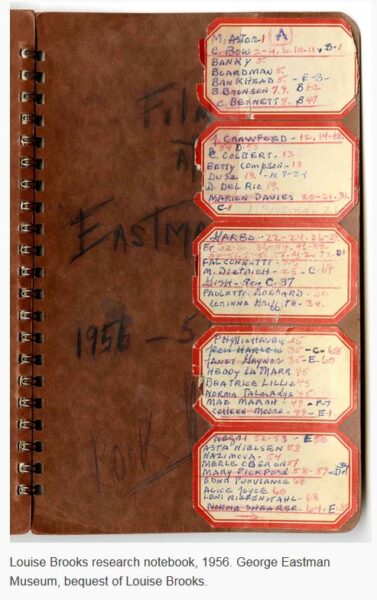 Film
at
Eastma
1956 – 5
M. ASTOR 1 A
C. BOW 2-4. 6. 10-11- B-1
BANKY 5.
BOARDMAN 5.
BANKHEAD 5. - E-3-
B. BRONSON 7.9. B 62
C. BENNETT 8. B 47
J. CRAWFORD - 12. 14-18.
C. COLBERT - 13
BETTY COMPSON - 13
DUSE 19. - M 8-24
D. DEL RIO 19.
MARION DAVIES 20-21. 31.
C-1
GARBO - 22-24-26-
FALCONNETTI
M. DIETRICH - 25 - C-67
GISH - 30 C-37
PAULETTE GODDARD -
CORINNE GRIFFITH - 34.
PHYLLIS HAVER 35
JEAN HARLOW 35 - C - 68
JANET GAYNOR 35 - E. 60
HEDDY LA MARR 45
BEATRICE LILLIE 45
NORMA TALMADGE
MAE MARSH - 49 -
COLLEEN MOORE - 49 - E-1
NEGRI 52-53 - E 50
ASTA NIELSEN 53
NAZIMOVA - 54
MERLE OBERON 57
MARY PICKFORD 58-59-
EDNA PURVIANCE 60
ALICE JOYCE 60
LENI RIEFENSTAHL - 63
NORMA SHEARER. 64. E-
Louise Brooks research notebook, 1956. George Eastman
Museum, bequest of Louise Brooks.